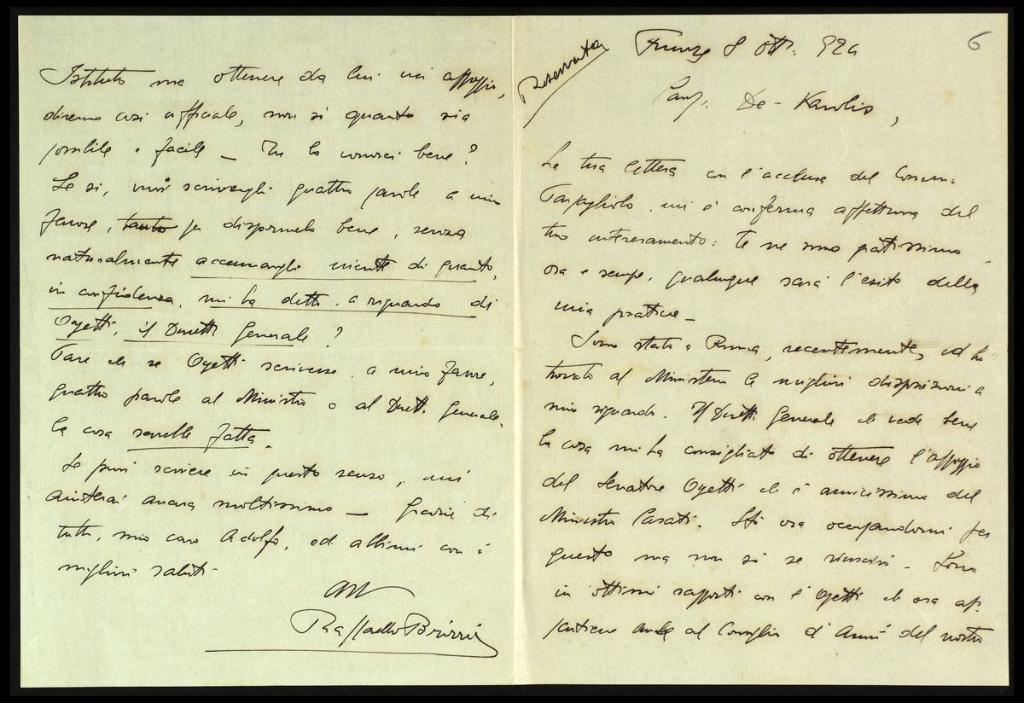 6
Riservata
Firenze 8 ott. 924
Car. De-Karolis,
La tua lettera con l'acclusa del Comm.
Tarpagliolo, mi è conferma affettuosa del
tuo interessamento: te ne sono gratissimo
ora e sempre, qualunque sarà l'esito della
mia pratica -
Sono stato a Roma, recentemente, ed ho
trovato al Ministero le migliori disposizioni a
mio riguardo. Il Dirett. Generale che vede bene
la cosa mi ha consigliato di ottenere l'appoggio
del Senatore Ogetti ch'è amicissimo del
Ministro Casati. Sto ora occupandomi per
questo ma non so se riuscirò. Sono
in ottimi rapporti con l'Ogetti che ora ap-
partiene anche al Consiglio d'Amm. del nostro
Istituto ma ottenere da lui un appoggio,
diremo così ufficiale, non so quanto sia
possibile e facile - Tu lo conosci bene?
Se si, vuoi scrivergli quattro parole a mio
favore, tanto per dispornelo bene, senza
naturalmente accennargli niente di quanto,
in confidenza, mi ha detto, a riguardo di
Ogetti, il Dirett. Generale?
Pare che se Ogetti scrivesse, a mio favore,
quattro parole al Ministro o al Dirett. Generale,
la cosa sarebbe fatta.
Se puoi scrivere in questo senso, mi
aiuterai ancora moltissimo - Grazie di
tutto, mio caro Adolfo, ed abbimi con i
migliori saluti
Raffaello Brizzi